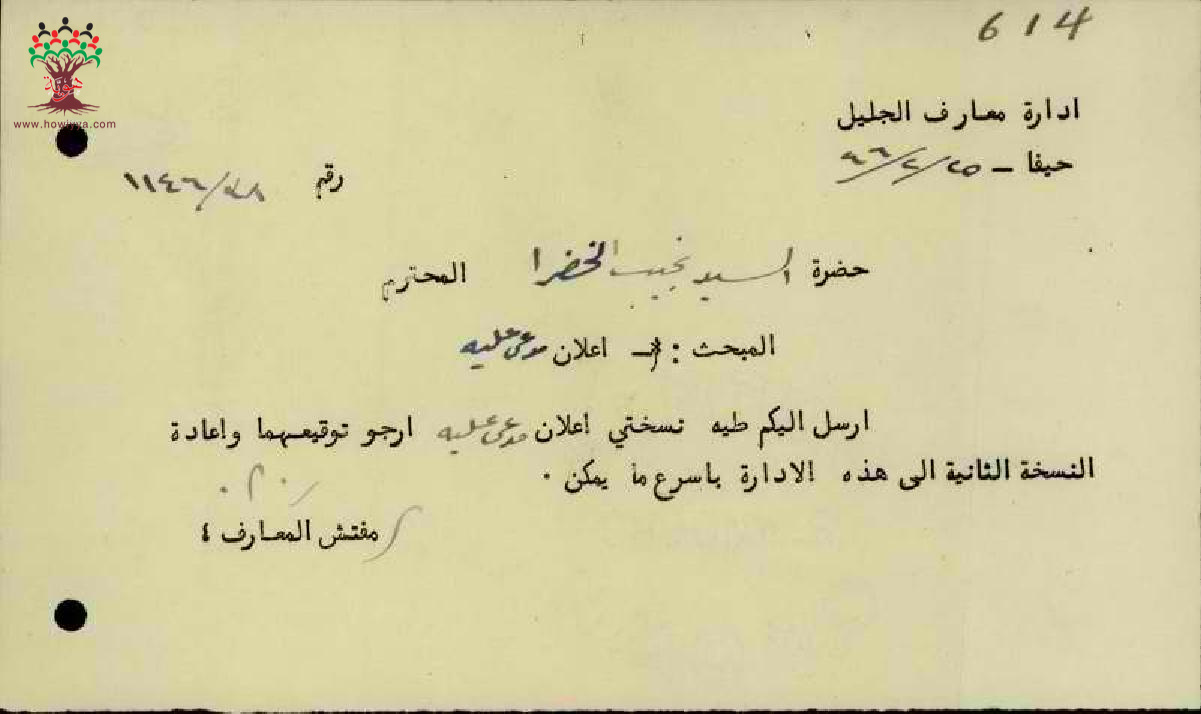 614
www.howiyya.com
ادارة معارف الجليل
حيفا - ٢٥/٢/٤٦
رقم ١١٤٦/٧٨
حضرة السيد نجيب الخضرا المحترم
المبحث : اعلان مدعى عليه
ارسل اليكم طيه نسختي اعلان مدعى عليه ارجو توقيعهما واعادة
النسخة الثانية الى هذه الادارة باسرع ما يمكن ٠
مفتش المعارف ٤